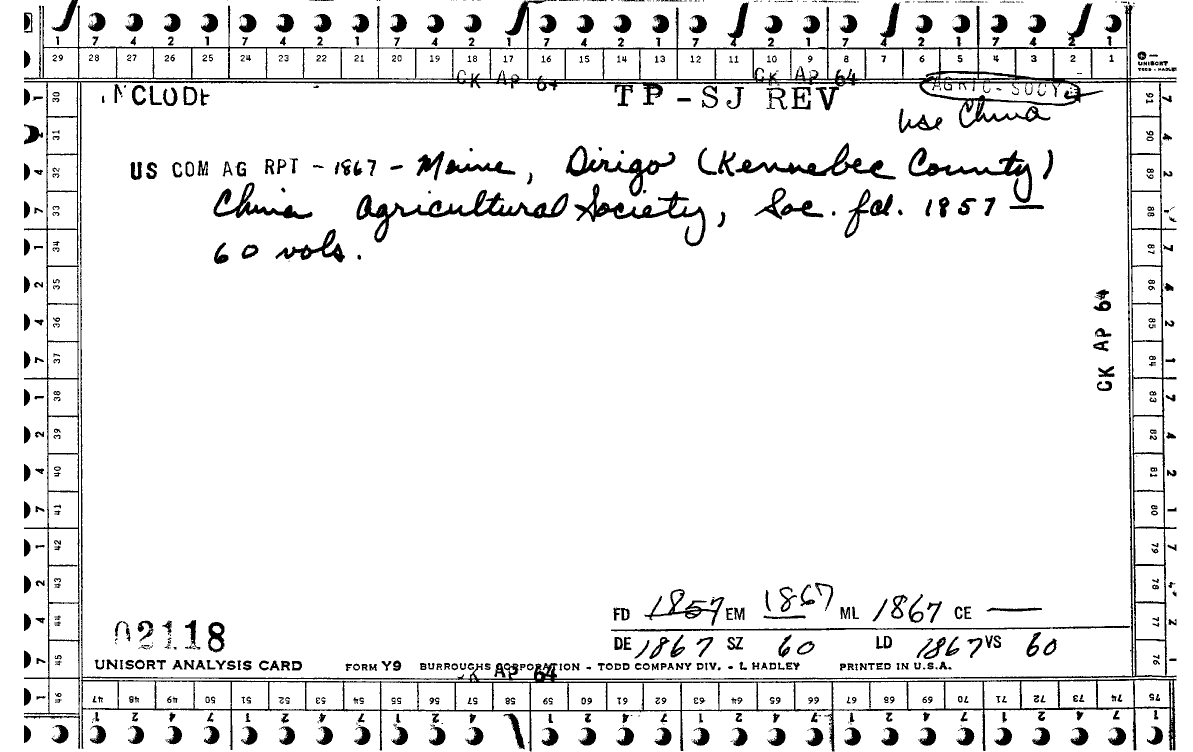 7 4 2 1 7 4 2 1 7 4 2 1 7 4 2 1 7 4 2 1 7 4 2 1
29 28 27 26 25 24 23 22 21 20 19 18 17 16 15 14 13 12 11 10 9 8 7 6 5 4 3 2 1
UNISORT
CK AP 64 CK AP 64
INCLUDE TP-SJ REV AGRIC-SOCY
use China
US COM AG RPT - 1867 - Maine, Dirigo (Kennebec County)
China Agricultural Society, Soc. fd. 1857 —
60 vols.
30
31
32
33
34
35
36
37
38
39
40
41
42
43
44
45
46
91
90
89
88
87
86
85
84
83
82
81
80
79
78
77
76
75
CK AP 64
FD 1857 EM 1867 ML 1867 CE —
02118
DE 1867 SZ 60 LD 1867 VS 60
UNISORT ANALYSIS CARD FORM Y9 BURROUGHS CORPORATION - TODD COMPANY DIV. - L HADLEY PRINTED IN U.S.A.
CK AP 64
47 48 49 50 51 52 53 54 55 56 57 58 59 60 61 62 63 64 65 66 67 68 69 70 71 72 73 74